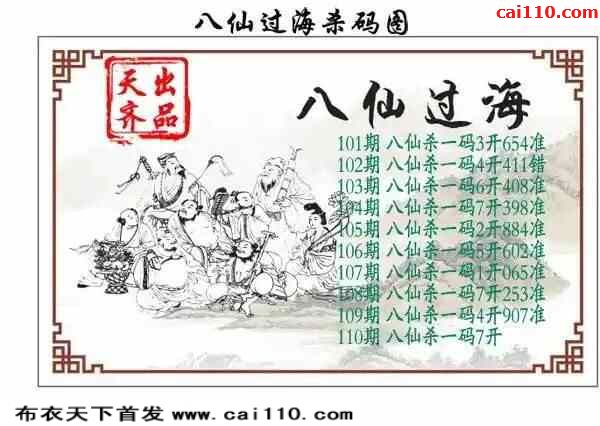 八仙过海杀码图
cai110.com
天齐出品
八仙过海
101期 八仙杀一码3开654准
102期 八仙杀一码4开411错
103期 八仙杀一码6开408准
104期 八仙杀一码7开398准
105期 八仙杀一码2开884准
106期 八仙杀一码5开602准
107期 八仙杀一码1开065准
108期 八仙杀一码7开253准
109期 八仙杀一码4开907准
110期 八仙杀一码7开
布衣天下首发 www.cai110.com